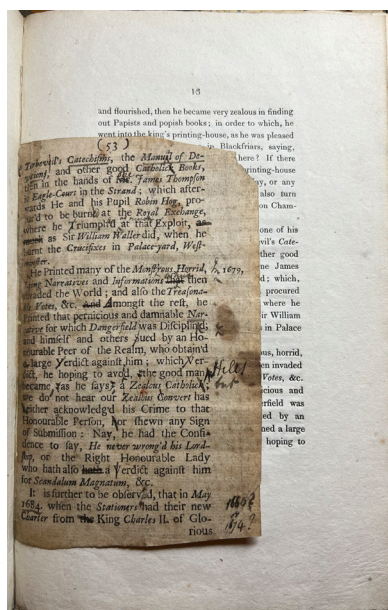 13
and flourished, then he became very zealous in finding
out Papists and popish books; in order to which, he
went into the king's printing-house, as he was pleased
in Blackfriars, saying,
here? If there
rinting-house
ay, or any
also turn
on Cham-
one of his
vil's Cate-
ther good
ne James
d; which,
procured
where he
ir William
s in Palace
us, horrid,
en invaded
Votes, &c.
icious and
erfield was
ed by an
ned a large
hoping to
(53)
Turbevil's Catechisms, the Manual of De-
votions, and other good Catholick Books,
then in the hands of Mr. James Thompson
in Eagle-Court in the Strand; which after-
wards He and his Pupil Robin Hog, pro-
cur'd to be burnt at the Royal Exchange,
where he Triumph'd at that Exploit, as
much as Sir William Waller did, when he
burnt the Crucifixes in Palace-yard, West-
minster.
He Printed many of the Monstrous, Horrid,
Lying Narratives and Informations that then
invaded the World; and also the Treasona-
ble Votes, &c. And Amongst the rest, he
Printed that pernicious and damnable Nar-
rative for which Dangerfield was Disciplin'd;
and himself and others sued by an Ho-
nourable Peer of the Realm, who obtain'd
a large Verdict against him; which Ver-
dict, he hoping to avoid, the good man
became (as he says) a Zealous Catholick;
we do not hear our Zealous Convert has
either acknowledg'd his Crime to that
Honourable Person, nor shewn any Sign
of Submission: Nay, he had the Confi-
dence to say, He never wrong'd his Lord-
ship, or the Right Honourable Lady
who hath also hath a Verdict against him
for Scandalum Magnatum, &c.
It is further to be observ'd, that in May
1684. when the Stationers had their new
Charter from the King Charles II. of Glo-
rious
1679,
1684?
1674?